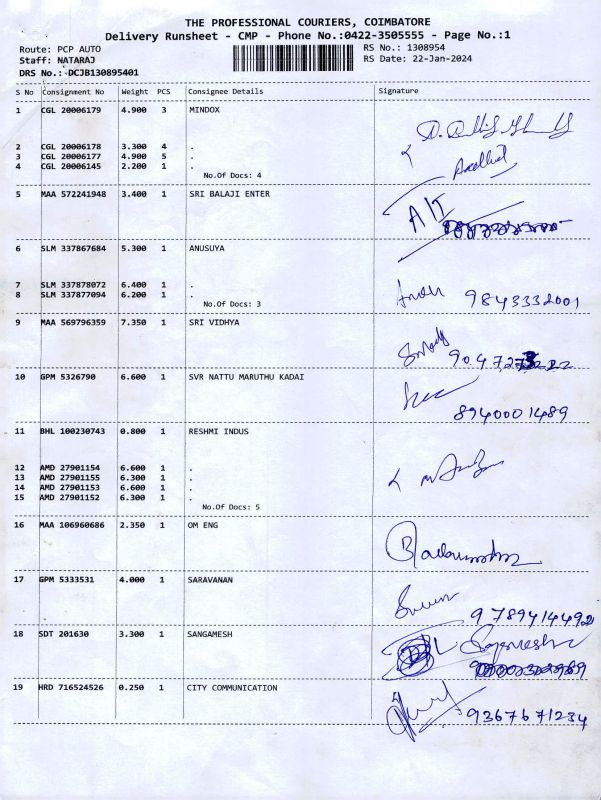 THE PROFESSIONAL COURIERS, COIMBATORE
Delivery Runsheet - CMP - Phone No.:0422-3505555 - Page No.:1
Route: PCP AUTO
RS No.: 1308954
Staff: NATARAJ
RS Date: 22-Jan-2024
DRS No.: DCJB130895401
S No Consignment No Weight PCS Consignee Details Signature
1 CGL 20006179 4.900 3 MINDOX
2 CGL 20006178 3.300 4 .
3 CGL 20006177 4.900 5 .
4 CGL 20006145 2.200 1 .
No.Of Docs: 4
5 MAA 572241948 3.400 1 SRI BALAJI ENTER
6 SLM 337867684 5.300 1 ANUSUYA
7 SLM 337878072 6.400 1 .
8 SLM 337877094 6.200 1 .
No.Of Docs: 3
9843332001
9 MAA 569796359 7.350 1 SRI VIDHYA
10 GPM 5326790 6.600 1 SVR NATTU MARUTHU KADAI
8940001489
11 BHL 100230743 0.800 1 RESHMI INDUS
12 AMD 27901154 6.600 1 .
13 AMD 27901155 6.300 1 .
14 AMD 27901153 6.600 1 .
15 AMD 27901152 6.300 1 .
No.Of Docs: 5
16 MAA 106960686 2.350 1 OM ENG
17 GPM 5333531 4.000 1 SARAVANAN
9789414492
18 SDT 201630 3.300 1 SANGAMESH
19 HRD 716524526 0.250 1 CITY COMMUNICATION
9367671234